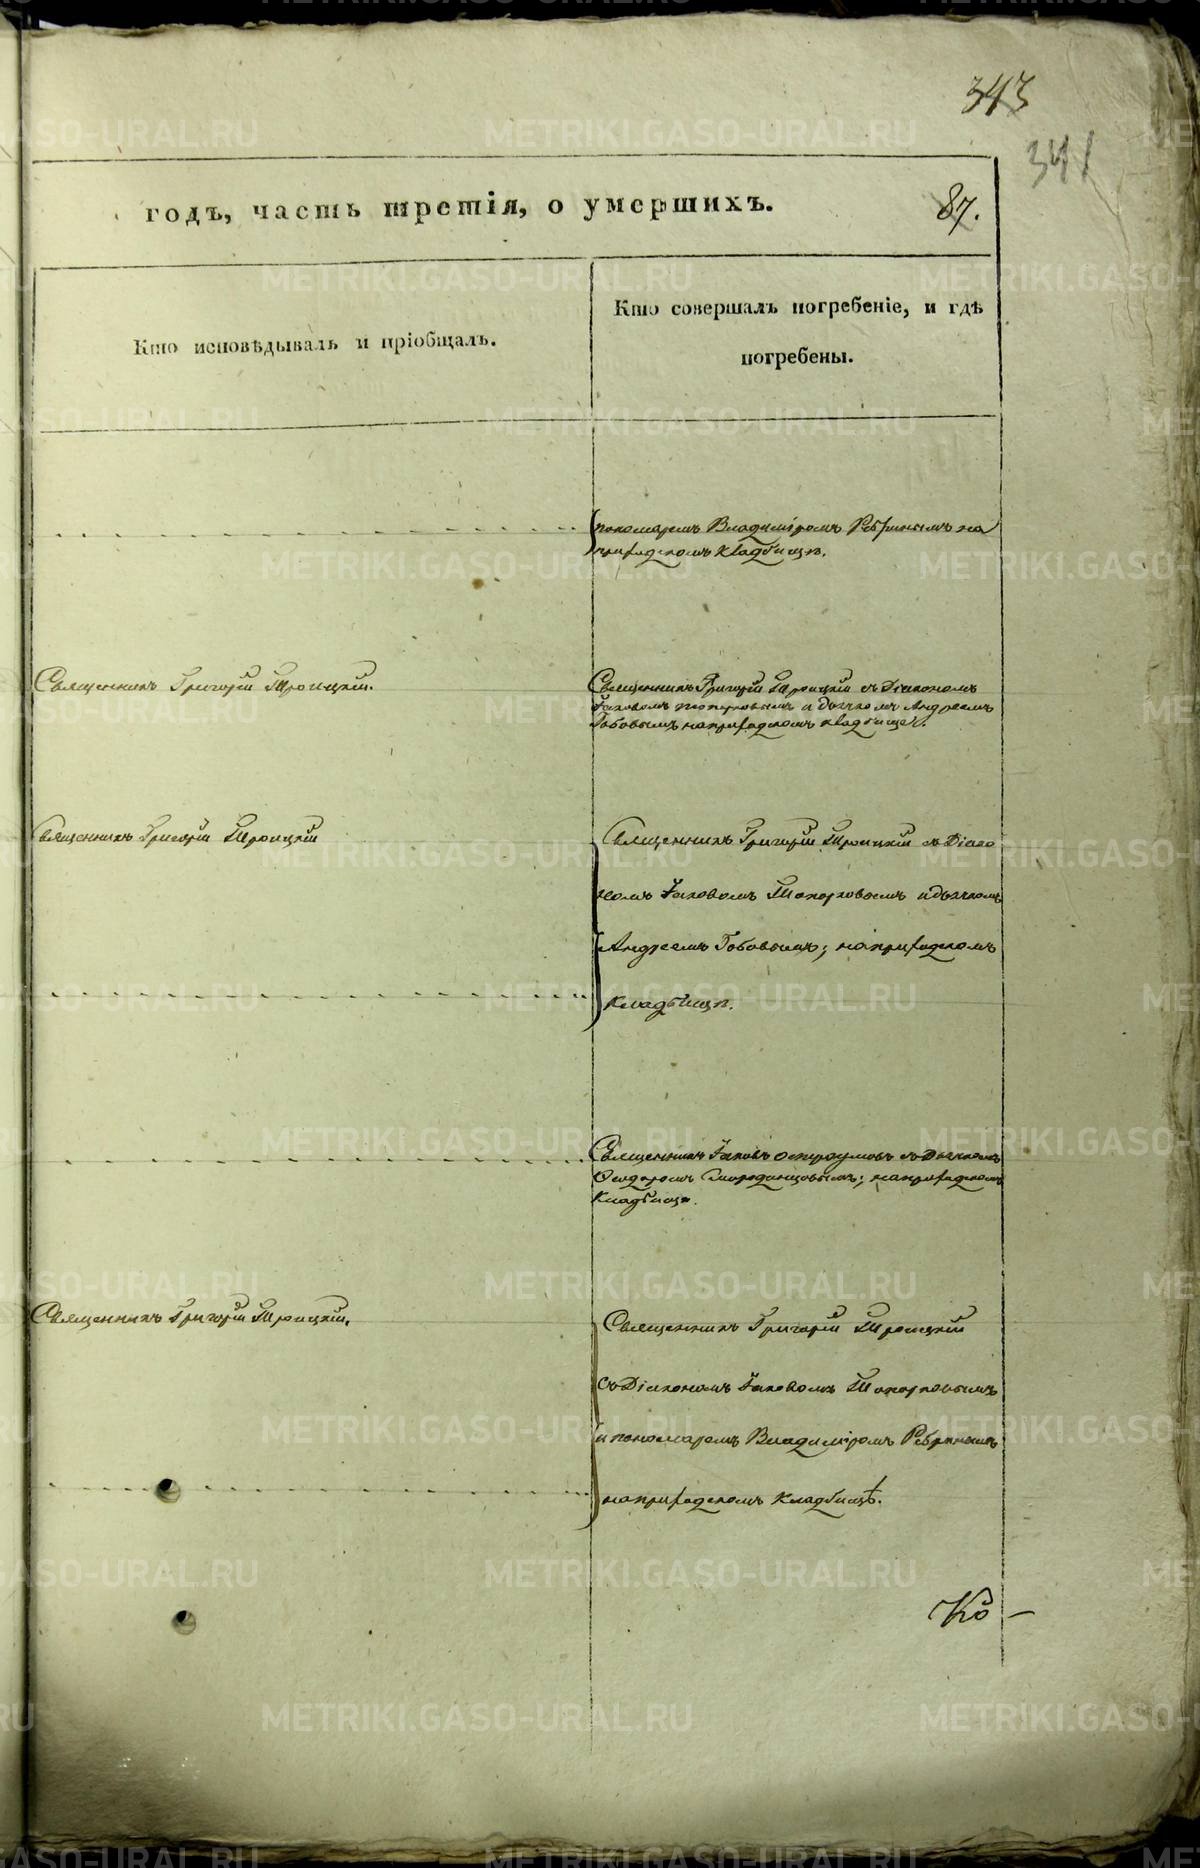 343
341
годъ, часть третія, о умершихъ.
87.
Кто исповѣдывалъ и пріобщалъ.
Кто совершалъ погребеніе, и гдѣ
погребены.
пономаремъ Владиміромъ на
приходскомъ кладбищѣ.
Священникъ Григорій Троицкій.
Священникъ Григорій Троицкій съ Діакономъ
Іаковомъ Топорковымъ и дьячкомъ Андреемъ
на приходскомъ кладбищѣ.
Священникъ Григорій Троицкій
Священникъ Григорій Троицкій съ Діако
номъ Іаковомъ Топорковымъ и дьячкомъ
Андреемъ на приходскомъ
кладбищѣ.
Священникъ Іаковъ Остроумовъ съ Дьячкомъ
Ѳеодоромъ на приходскомъ
кладбищѣ.
Священникъ Григорій Троицкій.
Священникъ Григорій Троицкій
съ Діакономъ Іаковомъ Топорковымъ
и пономаремъ Владиміромъ
на приходскомъ кладбищѣ.
Ко —
METRIKI.GASO-URAL.RU